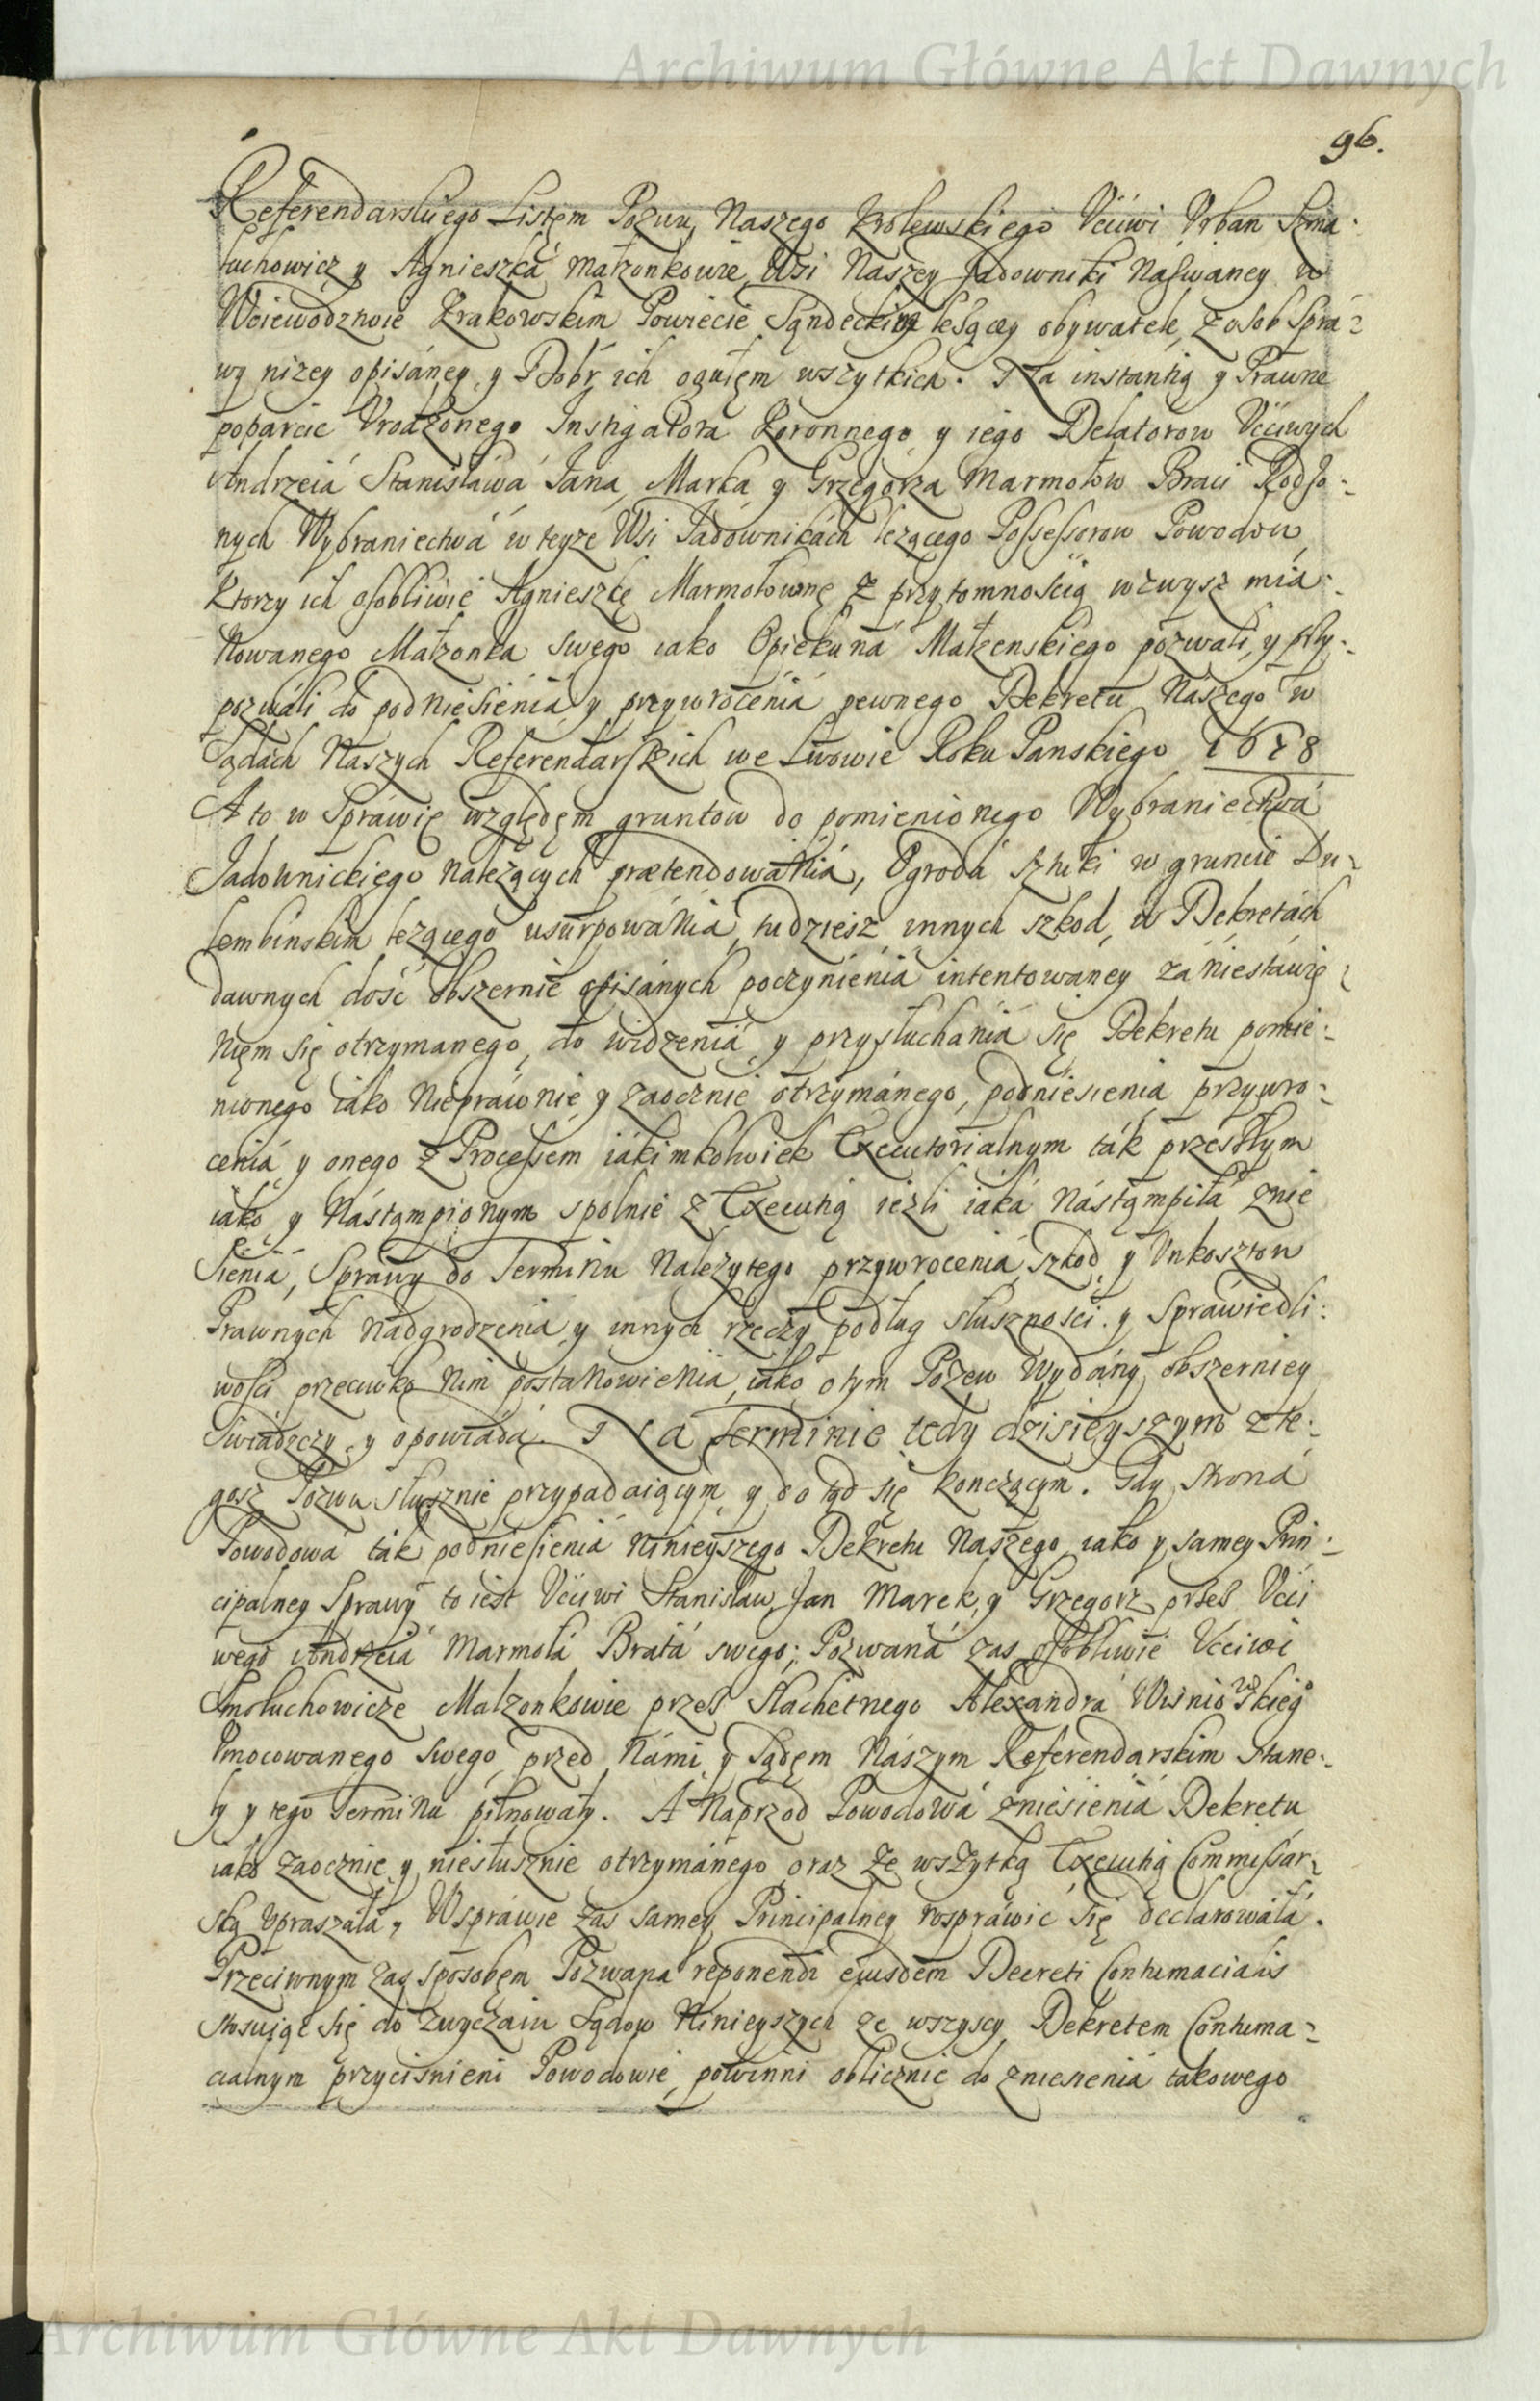 Archiwum Główne Akt Dawnych
96.
Referendarskiego Listęm Pozwu Naszego Krolewskiego Uććiwi Urban Szma-
łuchowicz y Agnieszká małzonkowie Wsi Naszey Jadowniki Nazwaney w
Woiewodztwie Krakowskim Powiecie Sądeckim leżącey obywatele, z osob Sprá-
wą niżey opisáney y Dobr ich ogułęm wszytkich. Na instantią y Prawne
poparcie Urodzonego Instigatora Koronnego y iego Delatorow Uććiwych
Andrzeiá Stanisławá Jana Marka y Grzegorza Marmołow Braci Rodzo-
nych Wybraniectwá w teyze Wsi Jadownikách leżącego Possessorow Powodow
Ktorzy ich osobliwie Agnieszkę Marmołownę z przytomnoscią wzwysz miá-
Nowanego Małzonka swego iako Opiekuná Małzenskiego pozwali, y przy-
pozwáli do podniesieniá y przywroceniá pewnego Dekretu Nászego w
Sądách Naszych Referendarskich we Lwowie Roku Panskiego 1678
A to w Spráwie względęm gruntow do pomienionego Wybraniectwá
Jadownickiego należących prætendowániá, Ogrodá sztuki w gruncie Du-
łembinskim leżącego usurpowániá, tudziesz innych szkod, w Dekretách
dawnych dość obszernie opisánych poczynieniá intentowaney zá niestáwie-
niem się otrzymanego, do widzeniá y przysłuchániá się Dekretu pomie-
nionego iáko Niepráwnie y zaocznie otrzymánego, podniesienia przywro-
ceniá y onego z Processem iákimkolwiek Executorialnym ták przeszłym
iáko y Nástąmpionym spolnie z Executią ieżli iáká Nástąmpiłá znie
sieniá, Sprawy do Terminu Należytego przywroceniá, szkod y Unkosztow
Prawnych Nádgrodzenia y innych rzeczy podług słusznosci y Spráwiedli-
wości przeciwko Nim postánowieniá, iáko o tym Pozew Wydány obszerniey
Swiádczy y opowiada. Na Terminie tedy dzisieyszym z te-
gosz Pozwu słusznie przypadaiącym y do tąd się konczącym. Gdy stroná
Powodowa ták podniesieniá Ninieyszego Dekretu Naszego iako y samey Prin-
cipalney Sprawy to iest Uććiwi Stanisław, Jan Marek, y Grzegorz przes Ucći
wego Andrzeiá Marmołá Bratá swego; Pozwaná zas osobliwie Uććiwi
Smołuchowicze Malzonkowie przes Slachetnego Alexandrá Wisniowskiego
Umocowanego swego, przed Námi y Sądęm Nászym Referendarskim stane-
ły y tego Terminu pilnowały. A Naprzod Powodowá zniesieniá Dekretu
iako zaocznie y niesłusznie otrzymánego, oraz ze wszytką Executią Commissar-
ską upraszáłá, W spráwie zas samey Principalney rospráwić się declarowáłá.
Przeciwnym zas sposobęm Pozwana reponendi eiusdem Decreti Contumacialis
stosuiąc się do zwyczaiu Sądow Ninieyszych ze wszyscy Dekretem Contuma-
cialnym przycisnieni Powodowie, powinni oblicznie do zniesieniá takowego
Archiwum Główne Akt Dawnych